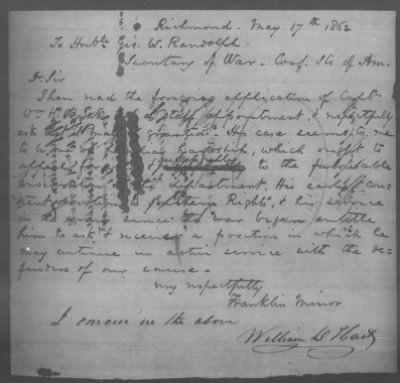 Richmond. May 17th 1862
To Honble Geo. W. Randolph
Secretary of War. Conf. Sts of Am.
Dr Sir
I have read the foregoing application of Captn
Wm H. staff appointment, & respectfully
ask that it may granted. His case seems to me
to be one of which ought to
appeal to the favorable
consideration department. His
devotion to Southern Rights, & his service
in army since the war began entitle
him to ask & receive a position in which he
may continue in active service with the de-
fenders of our cause.
very respectfully
Franklin Minor
I concur in the above
William D Hart